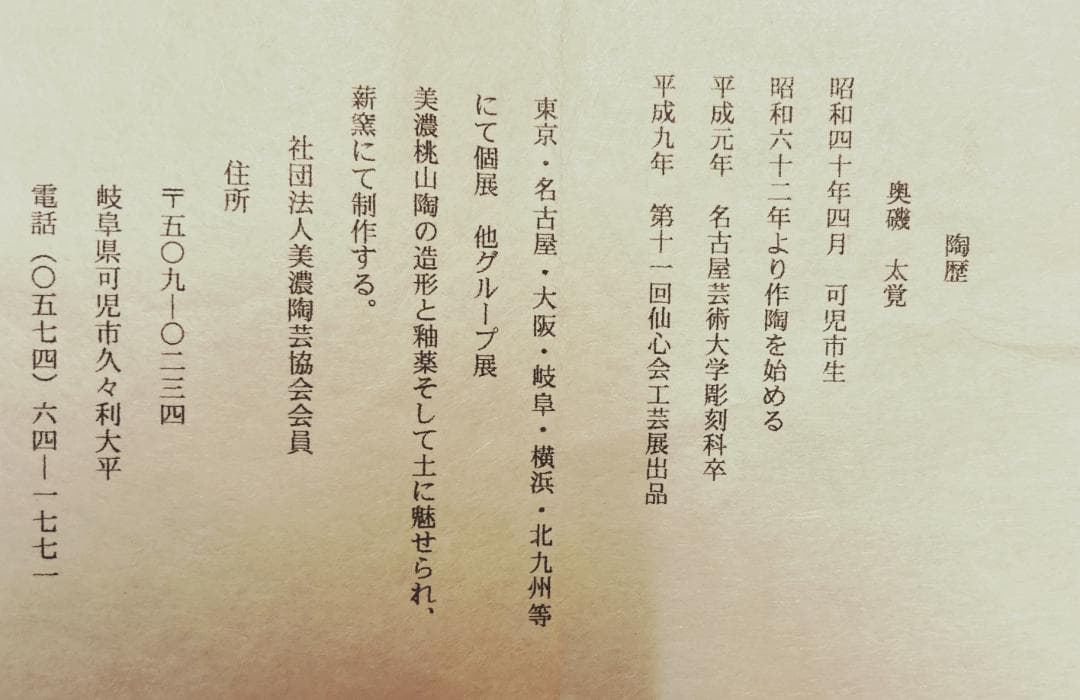 陶歴
奥磯　太覚
昭和四十年四月　可児市生
昭和六十二年より作陶を始める
平成元年　名古屋芸術大学彫刻科卒
平成九年　第十一回仙心会工芸展出品
東京・名古屋・大阪・岐阜・横浜・北九州等
にて個展　他グループ展
美濃桃山陶の造形と釉薬そして土に魅せられ、
薪窯にて制作する。
社団法人美濃陶芸協会会員
住所
〒五〇九―〇二三四
岐阜県可児市久々利大平
電話（〇五七四）六四―一七七一